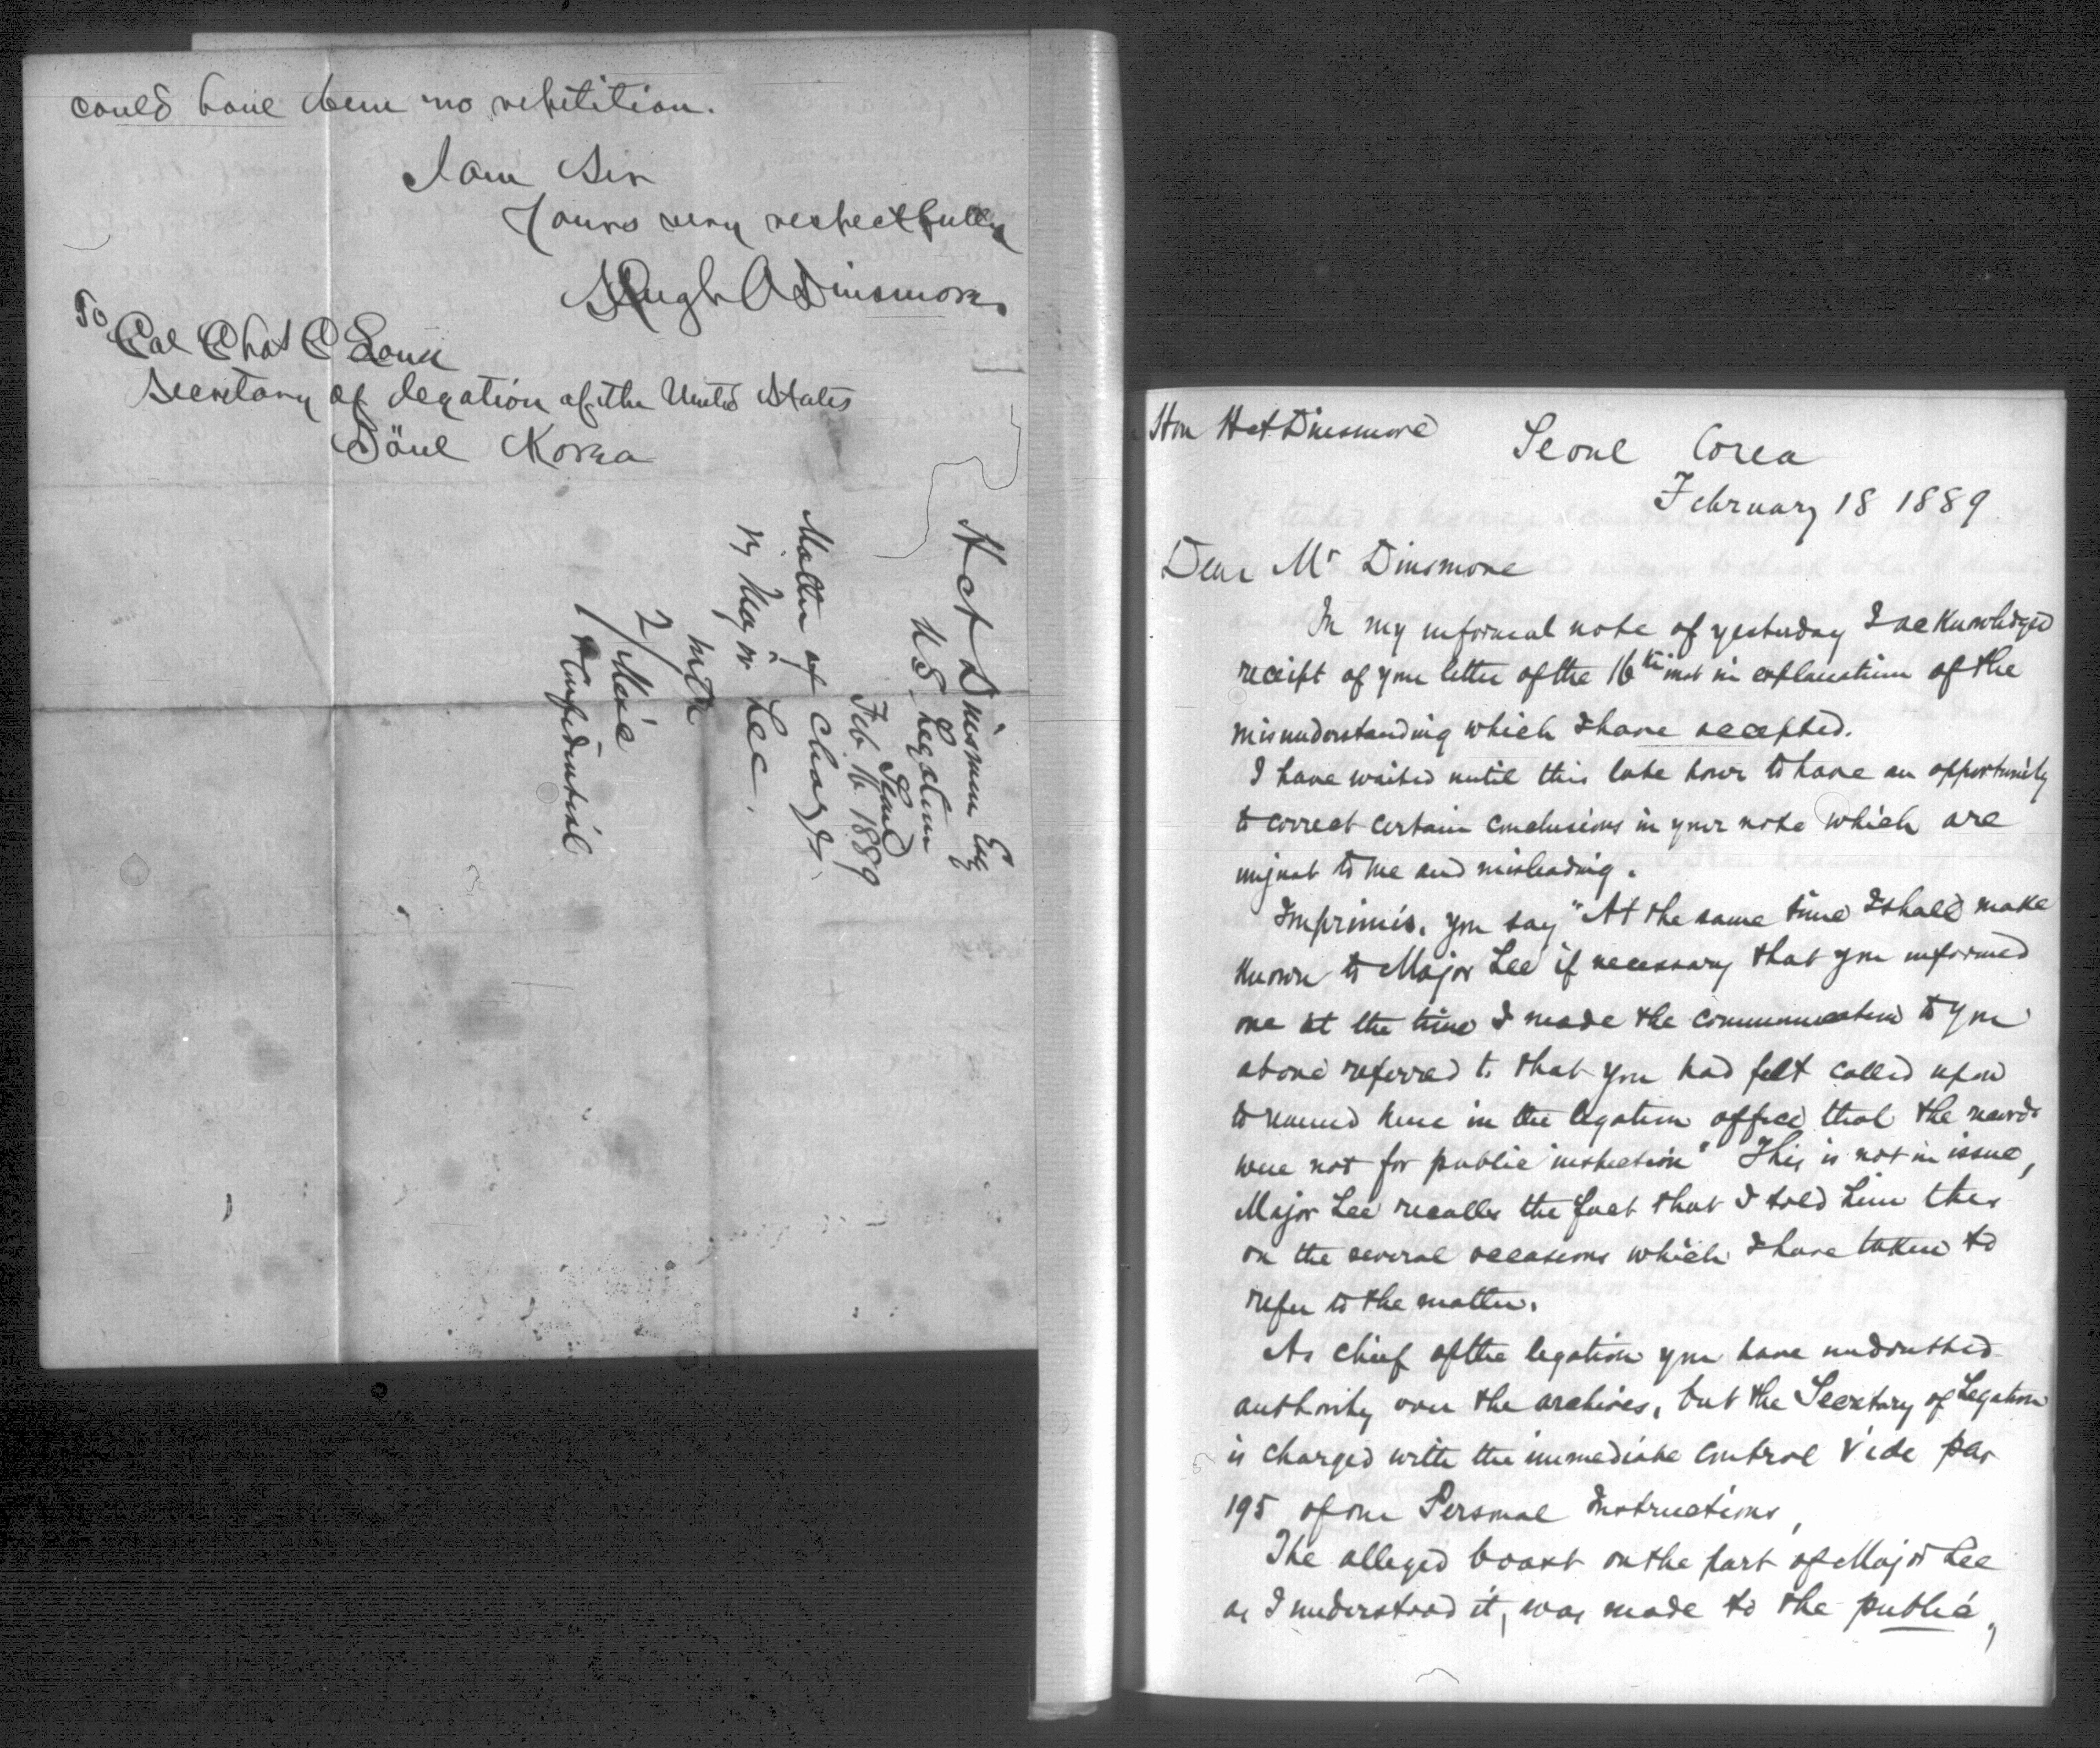 could have been no repitition.
I am Sir
Yours very respectfully
Hugh A Dinsmore.
To
Col Chas C Long
Secretary of Legation of the United States
Söul Korea
H A Dinsmore Esq
U S Legation
Seoul
Feb. 16 1889
Matter of charges
by Major Lee.
with
2/
1/ Confidential
Hon H A Dinsmore
Seoul Corea
February 18 1889
Dear Mr Dinsmore
In my informal note of yesterday I acknowledged
receipt of your letter of the 16th inst in explanation of the
misunderstanding which I have accepted.
I have waited until this late hour to have an opportunity
to correct certain conclusions in your note which are
unjust to me and misleading.
Imprimis. you say "At the same time I shall make
known to Major Lee if necessary that you informed
me at the time I made the communication to you
above referred to that you had felt called upon
to remind him in the legation office that the records
were not for public inspection" This is not in issue,
Major Lee recalls the fact that I told him this
on the several occasions which I have taken to
refer to the matter.
As chief of the legation you have undoubted
authority over the archives, but the Secretary of Legation
is charged with the immediate control Vide par
195 of our Personal Instructions,
The alleged boast on the part of Major Lee
as I understood it, was made to the public,